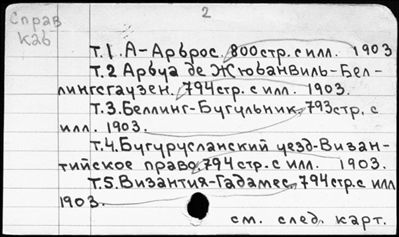 2
Справ
каб
т.1. А-Арброс. 800стр. с илл. 1903
т.2 Арбуа де Жюбанвиль-Бел-
лингсгаузен. 794стр. с илл. 1903.
т.3. Беллинг-Бугульник, 793стр. с
илл. 1903.
т.4. Бугурусланский уезд-Визан-
тийское право, 794стр. с илл. 1903.
т.5. Византия-Гадамес, 794стр. с илл
1903.
см. след. карт.